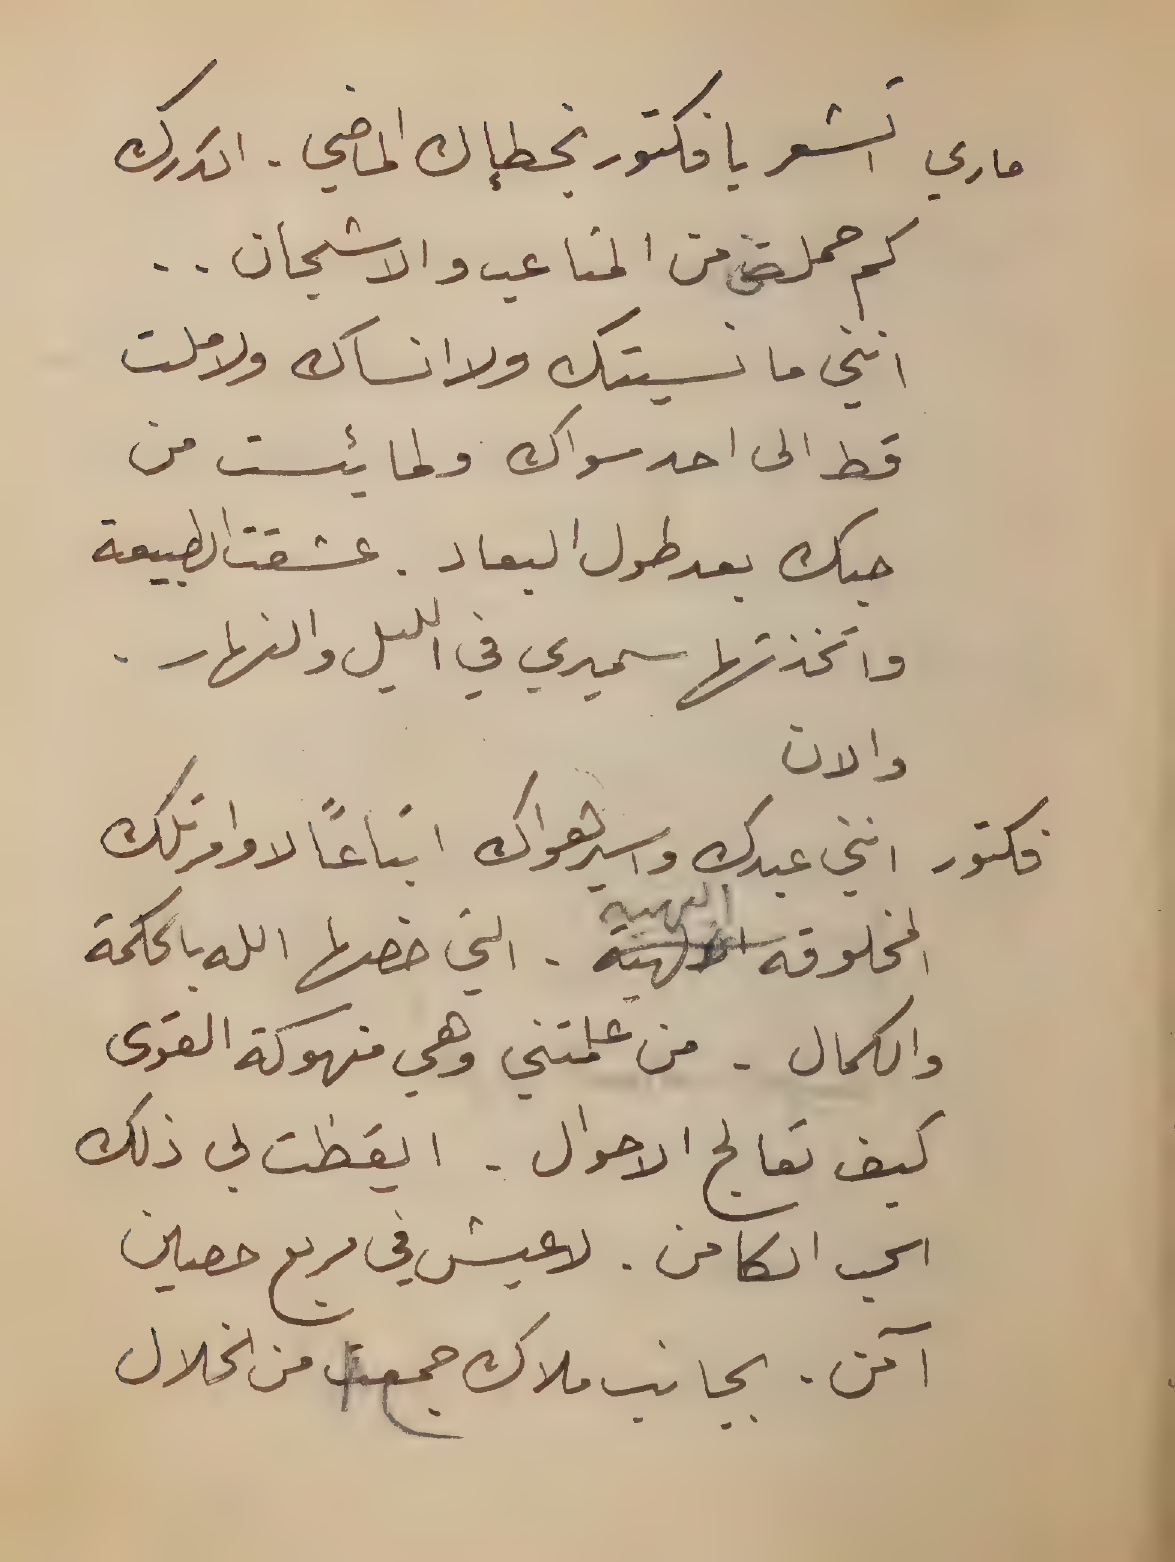 ماري أتشعر يا فكتور بخطإك الماضي . اتدرك
كم حملت من المتاعب والاشجان ..
انني ما نسيتك ولا انساك ولا ملت
قط الى احد سواك ولما يئست من
حبك بعد طول البعاد . عشقت الطبيعة
واتخذتها سميري في الليل والنهار .
والان
فكتور انني عبدك واسير هواك اتباعًا لاوامر تلك
المخلوقه البهية . التي خصها الله بالحكمة
والكمال . من علمتني وهي منهوكة القوى
كيف تعالج الاحوال . ايقظت لي ذلك
الحب الكامن . لاعيش في مربع حصين
آمن . بجانب ملاك جمع من الخلال